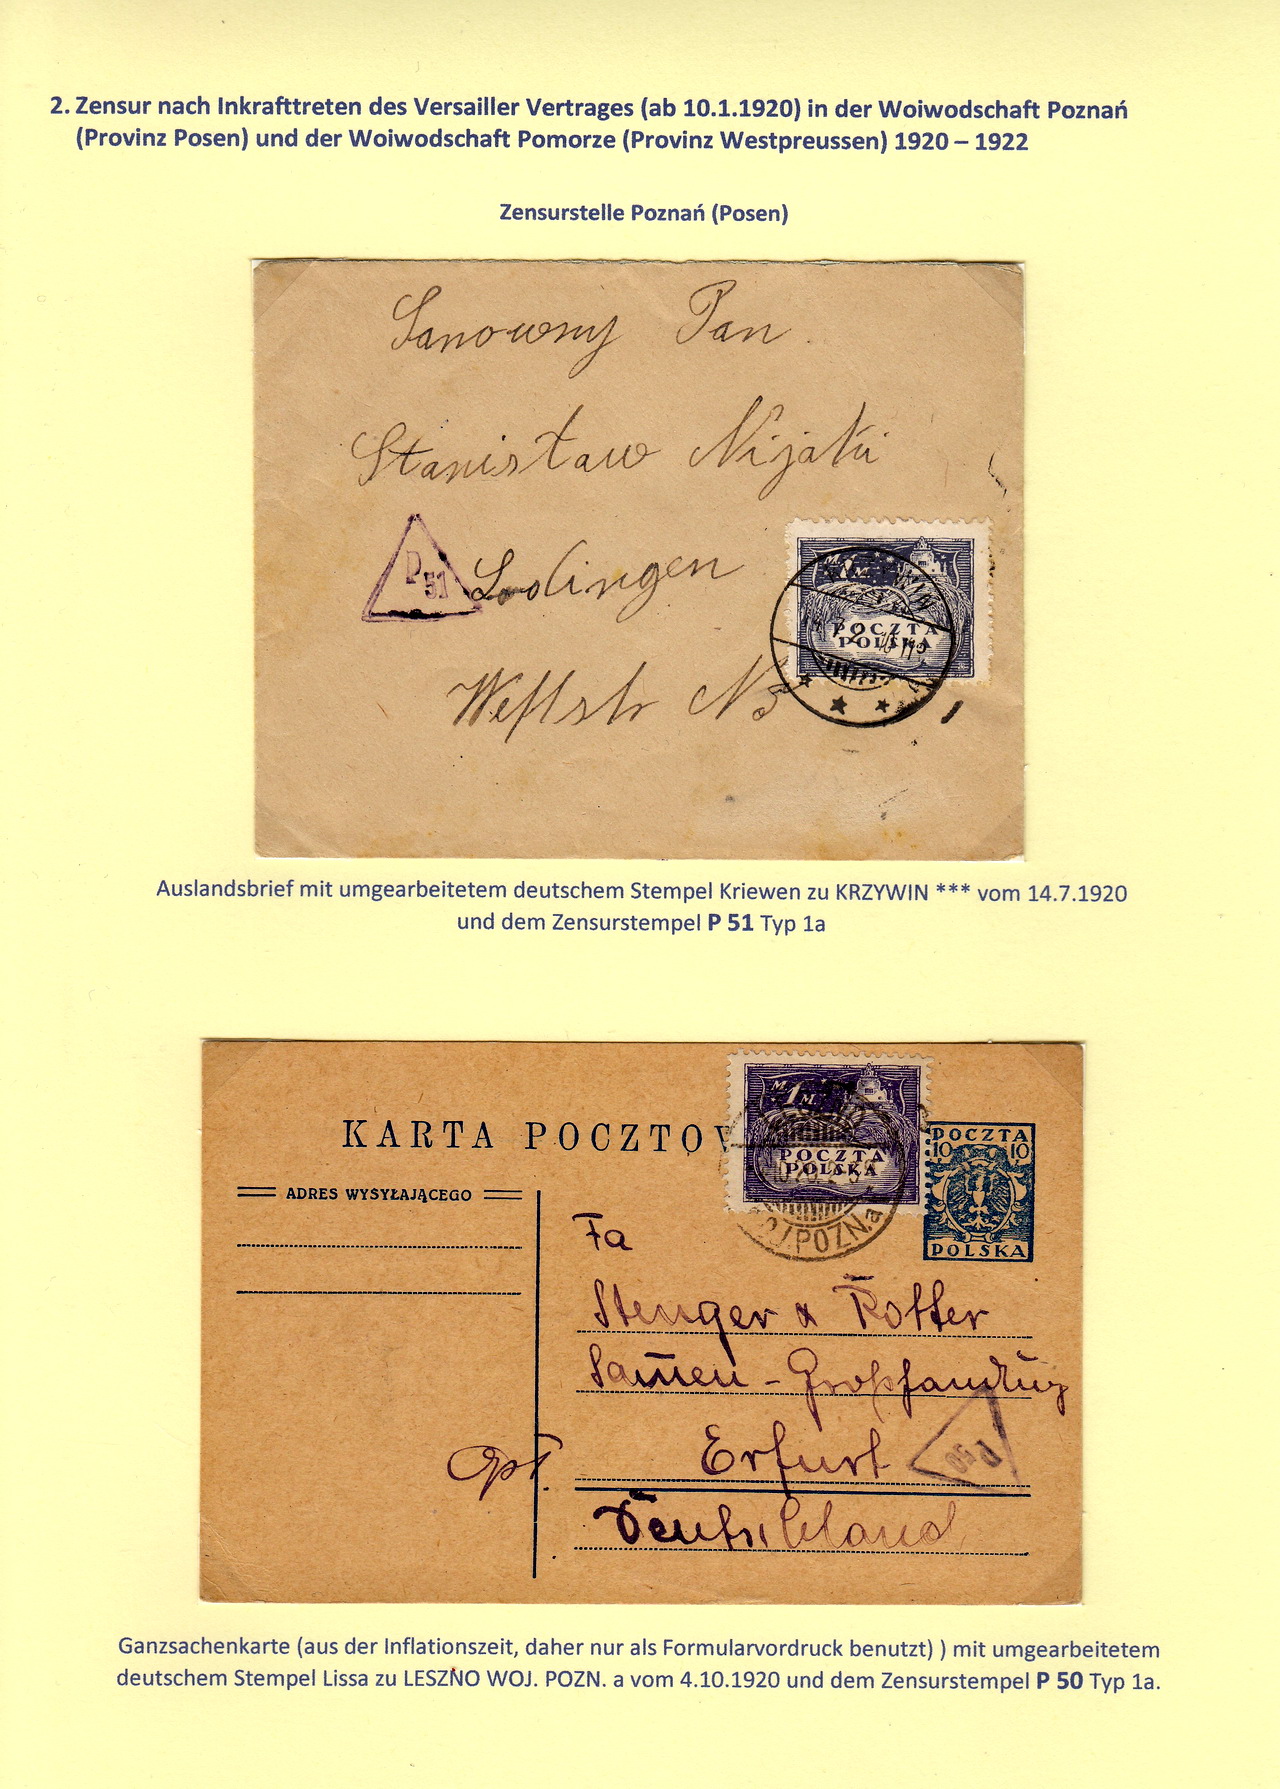 2. Zensur nach Inkrafttreten des Versailler Vertrages (ab 10.1.1920) in der Woiwodschaft Poznań
(Provinz Posen) und der Woiwodschaft Pomorze (Provinz Westpreussen) 1920 – 1922
Zensurstelle Poznań (Posen)
Sanowny Pan
Stanisław Nijaki
P
51
Solingen
M. 1 M.
POCZTA
POLSKA
Weftstr N 3
Auslandsbrief mit umgearbeitetem deutschem Stempel Kriewen zu KRZYWIN *** vom 14.7.1920
und dem Zensurstempel P 51 Typ 1a
M. 1 M.
POCZTA
POLSKA
KARTA POCZTOW
POCZTA
10 10
POLSKA
ADRES WYSYŁAJĄCEGO
WOJ.POZN. a
Fa
Stenger & Rotter
Samen - Großhandlung
Erfurt
P 50
Deutschland
Ganzsachenkarte (aus der Inflationszeit, daher nur als Formularvordruck benutzt) ) mit umgearbeitetem
deutschem Stempel Lissa zu LESZNO WOJ. POZN. a vom 4.10.1920 und dem Zensurstempel P 50 Typ 1a.